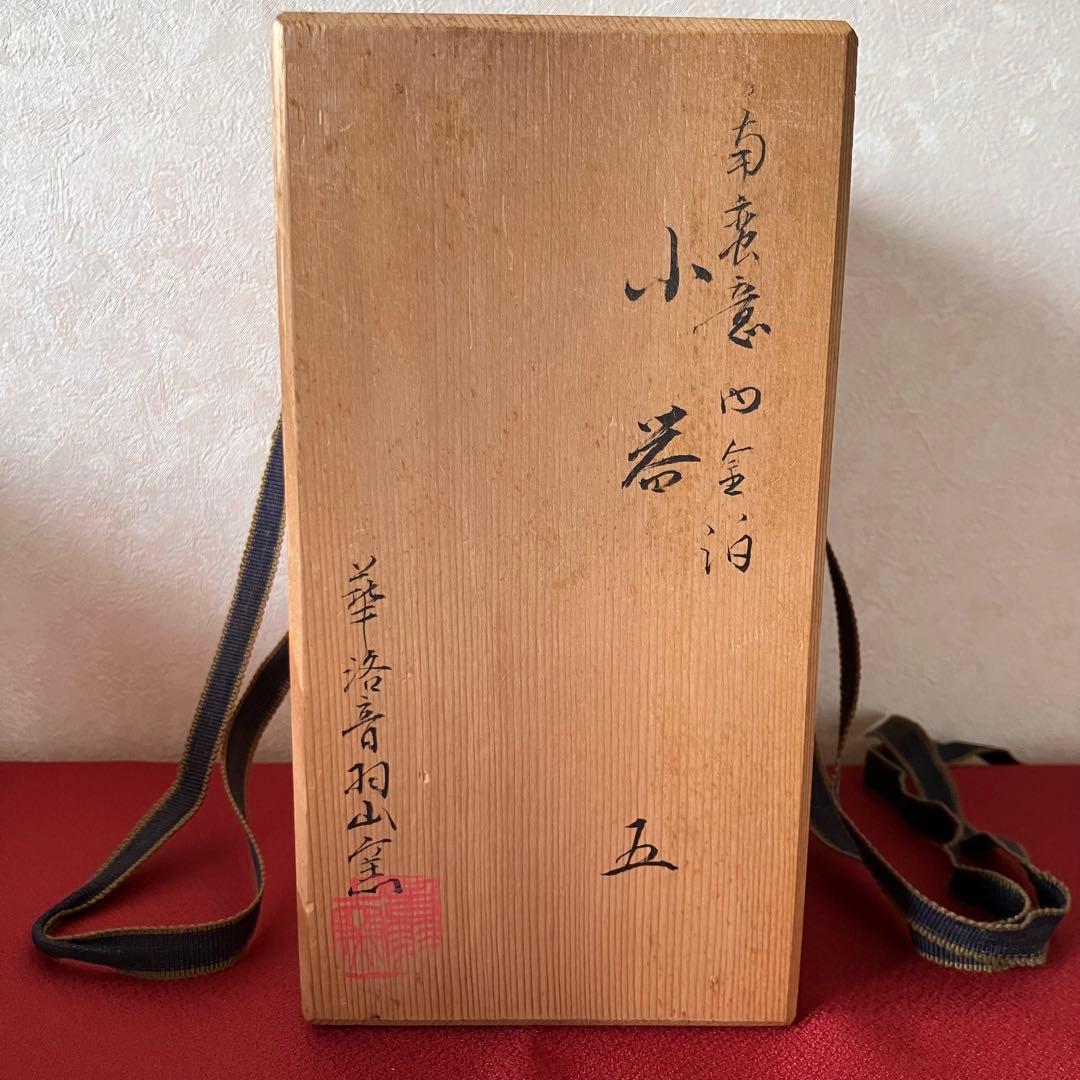 南蛮意内金泊
小器 五
華洛音羽山窯